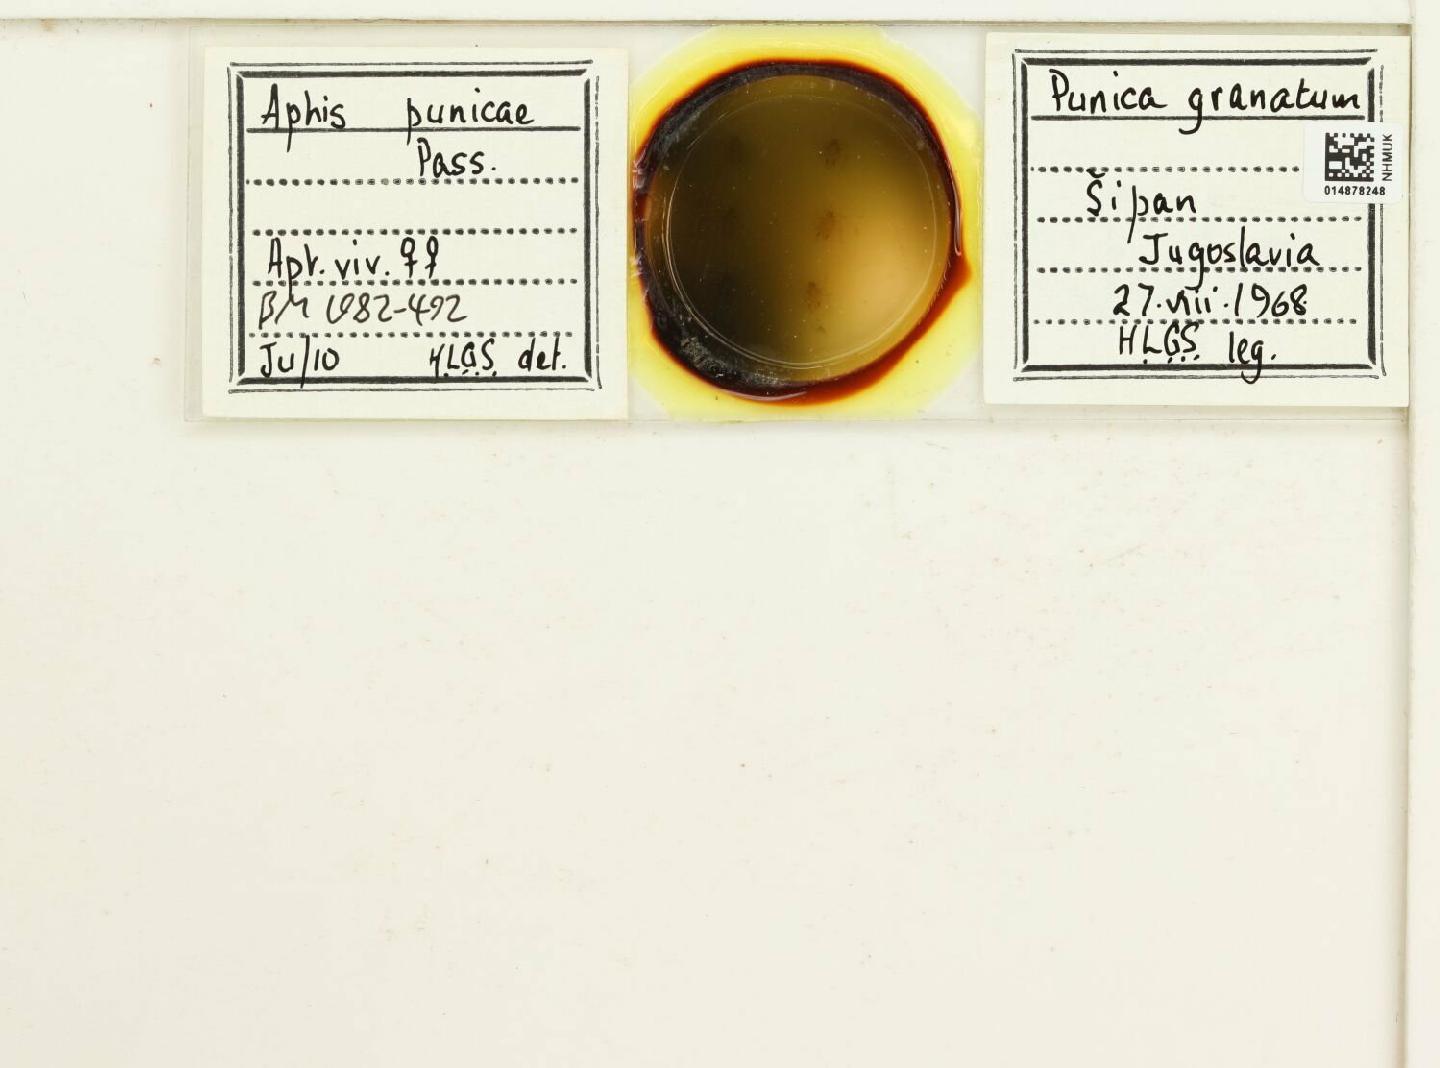 Aphis punicae
Pass.
Apt. viv. ♀♀
BM 1982-492
Ju/10 H.L.G.S. det.
Punica granatum
Šipan
Jugoslavia
27.viii.1968
H.L.G.S. leg.
NHMUK
014878248